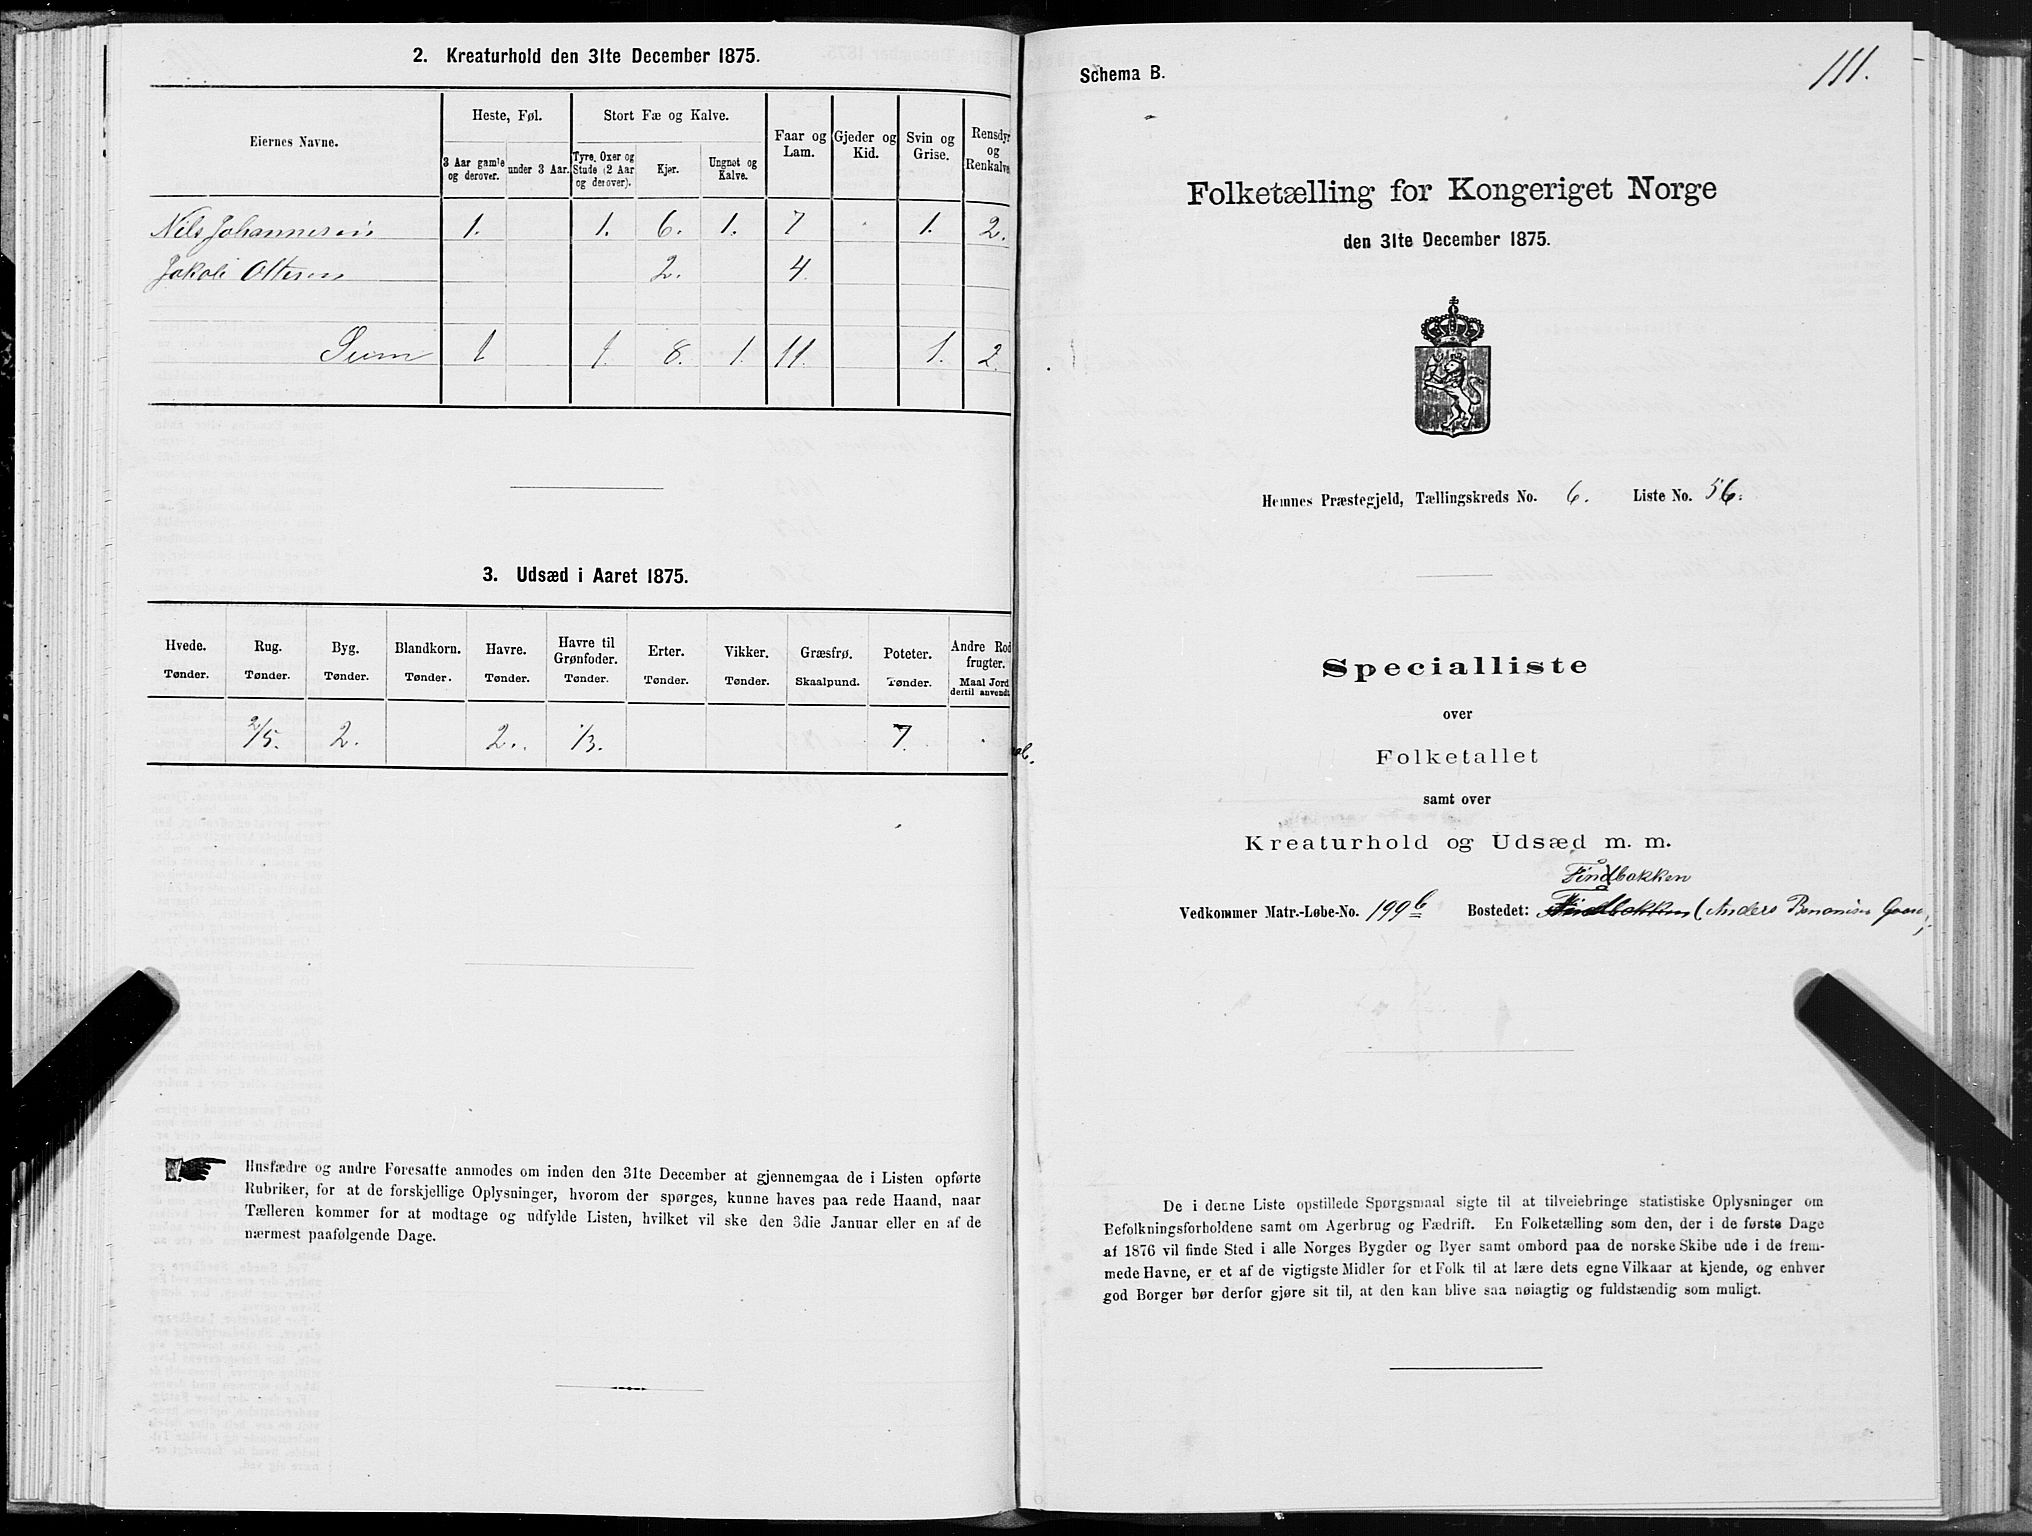 2. Kreaturhold den 31te December 1875.
Eiernes Navne.
Heste, Føl.
Stort Fæ og Kalve.
Faar og Lam.
Gjeder og Kid.
Svin og Grise.
Rensdyr og Renkalve
3 Aar gamle og derover.
under 3 Aar.
Tyre, Oxer og Stude (2 Aar og derover).
Kjør.
Ungnøt og Kalve.
Nils Johannesen 1. 1. 6. 1. 7 1. 2.
Jakob Ottesen 2. 4.
Sum 1 1. 8. 1. 11. 1. 2.
3. Udsæd i Aaret 1875.
Hvede. Rug. Byg. Blandkorn. Havre. Havre til Grønfoder. Erter. Vikker. Græsfrø. Poteter. Andre Rod frugter.
Tønder. Tønder. Tønder. Tønder. Tønder. Tønder. Tønder. Tønder. Skaalpund. Tønder. Maal Jord dertil anvendt
2/5. 2. 2.. 1/3. 7.
Husfædre og andre Foresatte anmodes om inden den 31te December at gjennemgaa de i Listen opførte
Rubriker, for at de forskjellige Oplysninger, hvorom der spørges, kunne haves paa rede Haand, naar
Tælleren kommer for at modtage og udfylde Listen, hvilket vil ske den 3die Januar eller en af de
nærmest paafølgende Dage.
111.
Schema B.
Folketælling for Kongeriget Norge
den 31te December 1875.
Hemnes Præstegjeld, Tællingskreds No. 6. Liste No. 56.
Specialliste
over
Folketallet
samt over
Kreaturhold og Udsæd m. m.
Findbakken
Vedkommer Matr.-Løbe-No. 199b Bostedet: Findbakken (Anders
De i denne Liste opstillede Spørgsmaal sigte til at tilveiebringe statistiske Oplysninger om
Befolkningsforholdene samt om Agerbrug og Fædrift. En Folketælling som den, der i de første Dage
af 1876 vil finde Sted i alle Norges Bygder og Byer samt ombord paa de norske Skibe ude i de frem-
mede Havne, er et af de vigtigste Midler for et Folk til at lære dets egne Vilkaar at kjende, og enhver
god Borger bør derfor gjøre sit til, at den kan blive saa nøiagtig og fuldstændig som muligt.